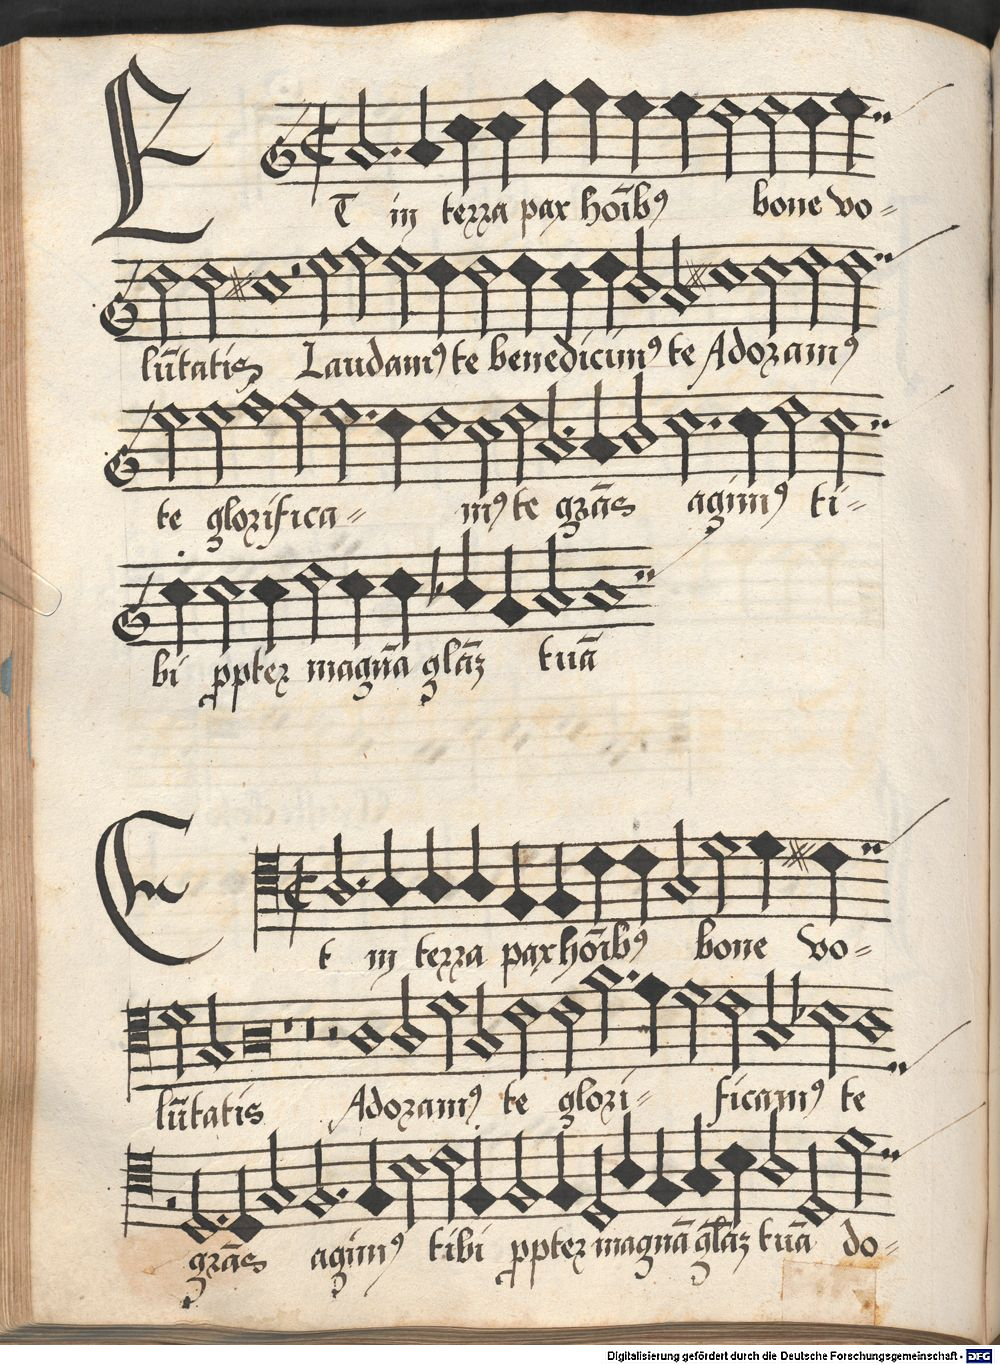 ET in terra pax hoībꝰ bone vo=
lūtatis Laudamꝰ te benedicimꝰ te Adoramꝰ
te glorifica= mꝰ te gr̄as agimꝰ ti=
bi ꝓpter magnā glāȝ tuā
Et in terra pax hōibꝰ bone vo=
lūtatis Adoramꝰ te glori= ficamꝰ te
gr̄as agimꝰ tibi ꝓpter magnā glāȝ tuā do=
Digitalisierung gefördert durch die Deutsche Forschungsgemeinschaft - DFG